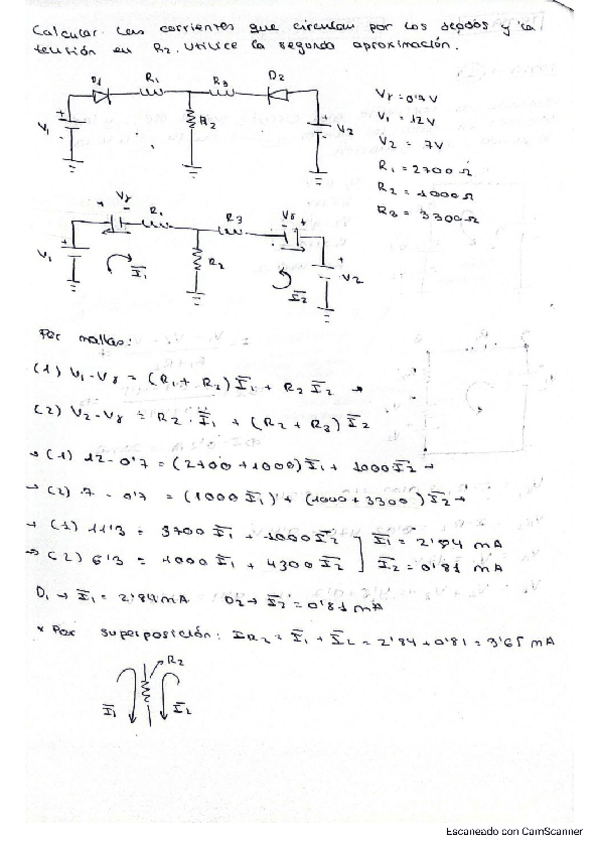 Calcular las corrientes que circulan por los diodos y la
tensión en R2. Utilice la segunda aproximación.
D1 R1 R3 D2
V1 + R2 + V2
Vγ = 0'7 V
V1 = 12 V
V2 = 7 V
R1 = 2700 Ω
R2 = 1000 Ω
R3 = 3300 Ω
+ Vγ - R1 R3 Vγ - +
V1 + I1 R2 I2 + V2
Por mallas:
(1) V1 - Vγ = (R1 + R2) I1 + R2 I2 →
(2) V2 - Vγ = R2 · I1 + (R2 + R3) I2
→ (1) 12 - 0'7 = (2700 + 1000) I1 + 1000 I2 →
→ (2) 7 - 0'7 = (1000 I1) + (1000 + 3300) I2 →
→ (1) 11'3 = 3700 I1 + 1000 I2 ] I1 = 2'84 mA
→ (2) 6'3 = 1000 I1 + 4300 I2 ] I2 = 0'81 mA
D1 → I1 = 2'84 mA D2 → I2 = 0'81 mA
* Por superposición: IR2 = I1 + I2 = 2'84 + 0'81 = 3'65 mA
R2
I1 I2
Escaneado con CamScanner